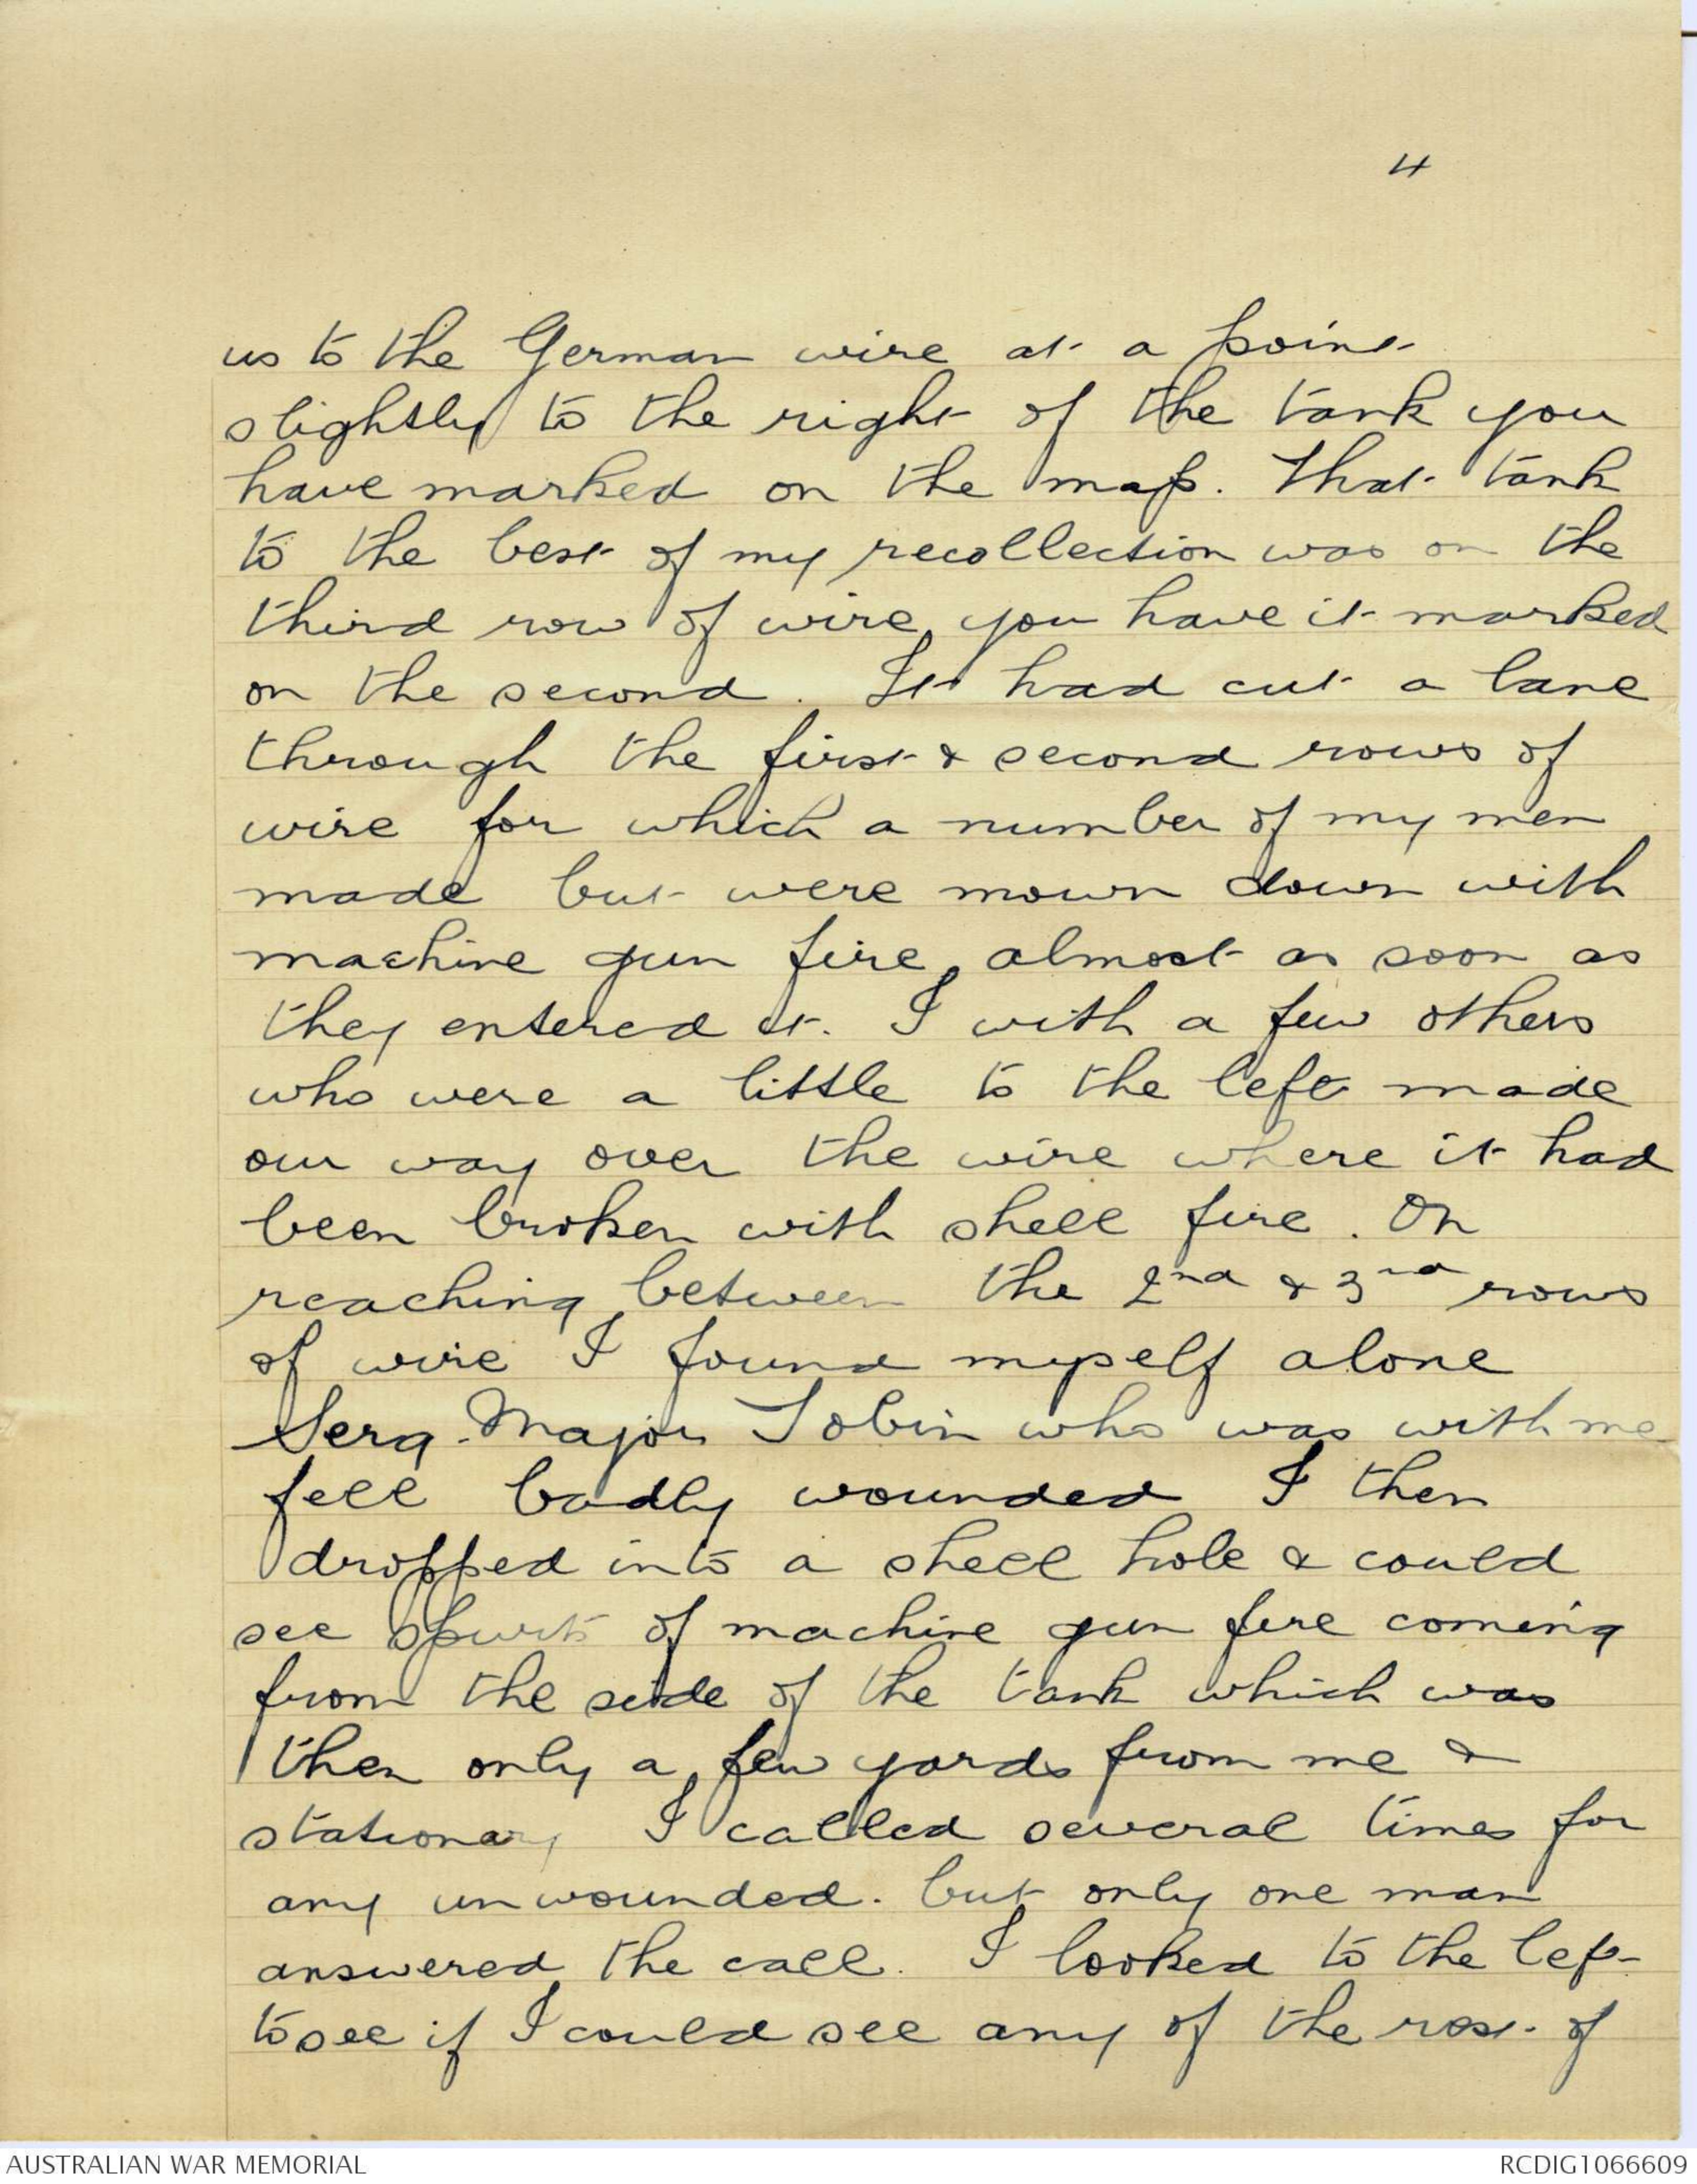 4
us to the German wire at a point
slightly to the right of the tank you
have marked on the map. That tank
to the best of my recollection was on the
third row of wire, you have it marked
on the second. It had cut a lane
through the first & second rows of
wire for which a number of my men
made but were mown down with
machine gun fire, almost as soon as
they entered it. I with a few others
who were a little to the left made
our way over the wire where it had
been broken with shell fire. On
reaching between the 2nd & 3rd rows
of wire I found myself alone
Serg. Major Tobin who was with me
fell badly wounded I then
dropped into a shell hole & could
see spurts of machine gun fire coming
from the side of the tank which was
then only a few yards from me &
stationary I called several times for
any unwounded. but only one man
answered the call. I looked to the left
to see if I could see any of the rest of
AUSTRALIAN WAR MEMORIAL
RCDIG1066609